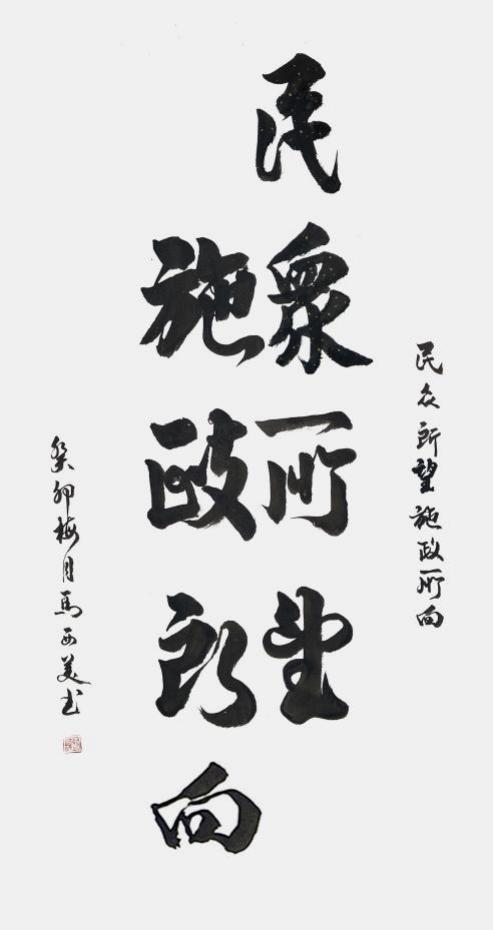 民众所望施政所向
民衆所望
施政所向
癸卯梅月馬西美书